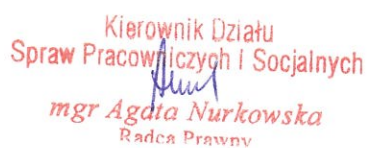 Kierownik Działu
Spraw Pracowniczych i Socjalnych
mgr Agata Nurkowska
Radca Prawny